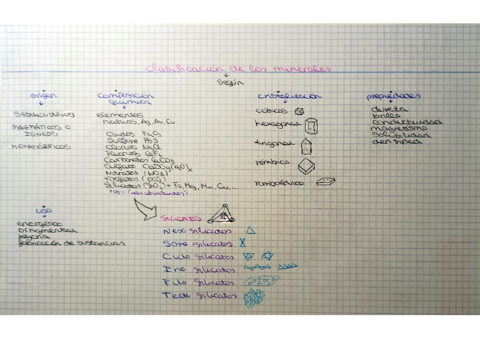 clasificación de los minerales
según
origen
sedimentarios
magmáticos o
ígneos
metamórficos
composición
química
elementos
nativos Ag, Au, Cu
Óxidos
Sulfuros
Cloruros NaCl
Fluoruros CaF₂
Carbonatos CaCO₃
Sulfatos
Nitratos
Fosfatos
Silicatos + Fe, Mg, Mn, Cu...
(más abundantes)
cristalización
cúbicos
hexagonal
trigonal
rómbico
romboédrico
propiedades
dureza
brillo
conductividad
magnetismo
solubilidad
densidad
uso
energético
ornamental
joyería
fabricación de sustancias
SILICATOS
Neso silicatos
Soro silicatos
Ciclo silicatos
Ino silicatos
Filo silicatos
Tecto silicatos